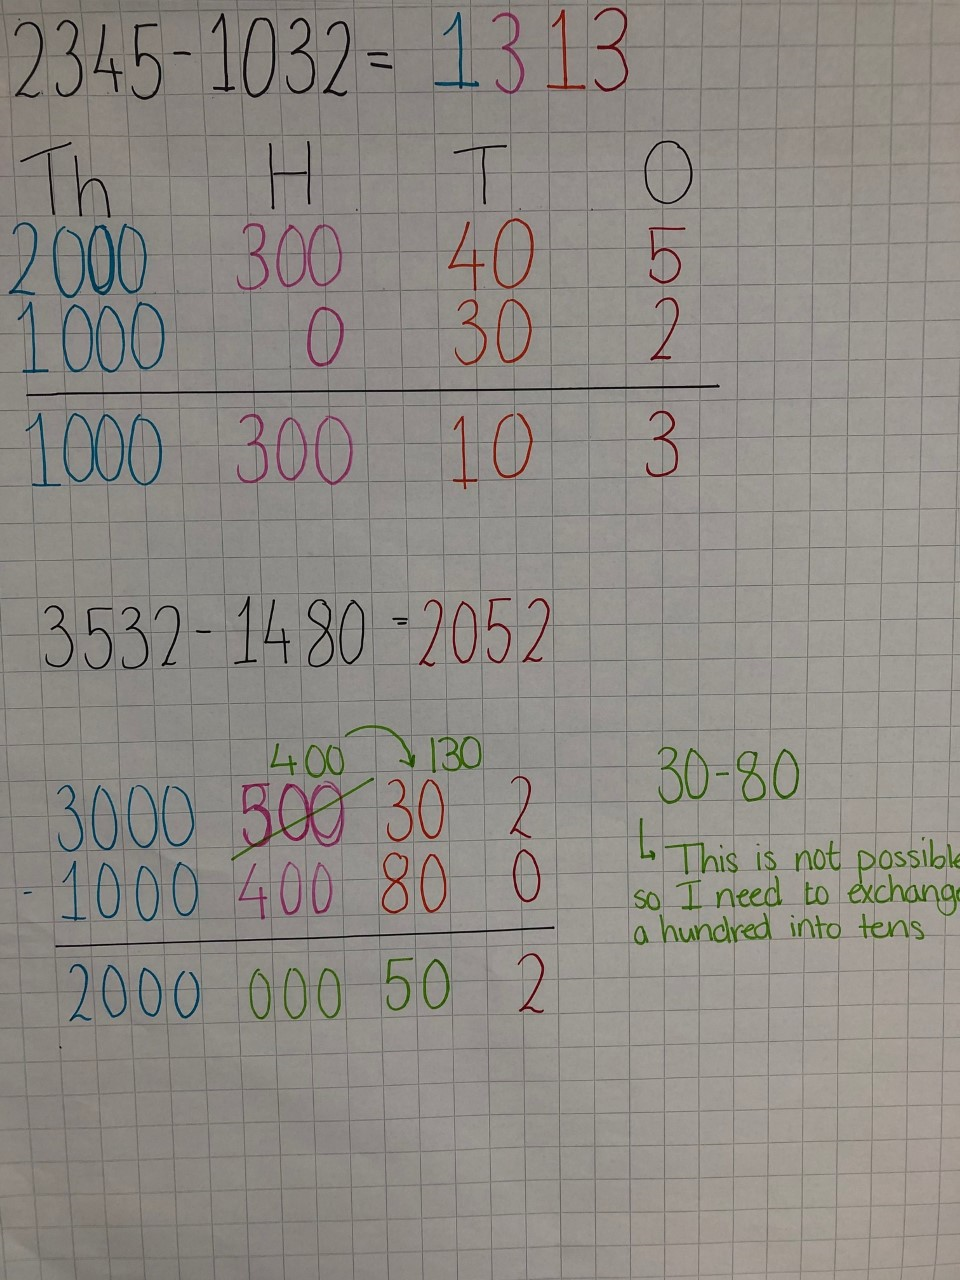 2345-1032= 1313
Th H T O
2000 300 40 5
1000 0 30 2
1000 300 10 3
3532-1480 =2052
400 130
3000 500 30 2
- 1000 400 80 0
2000 000 50 2
30-80
↳ This is not possible
so I need to exchange
a hundred into tens